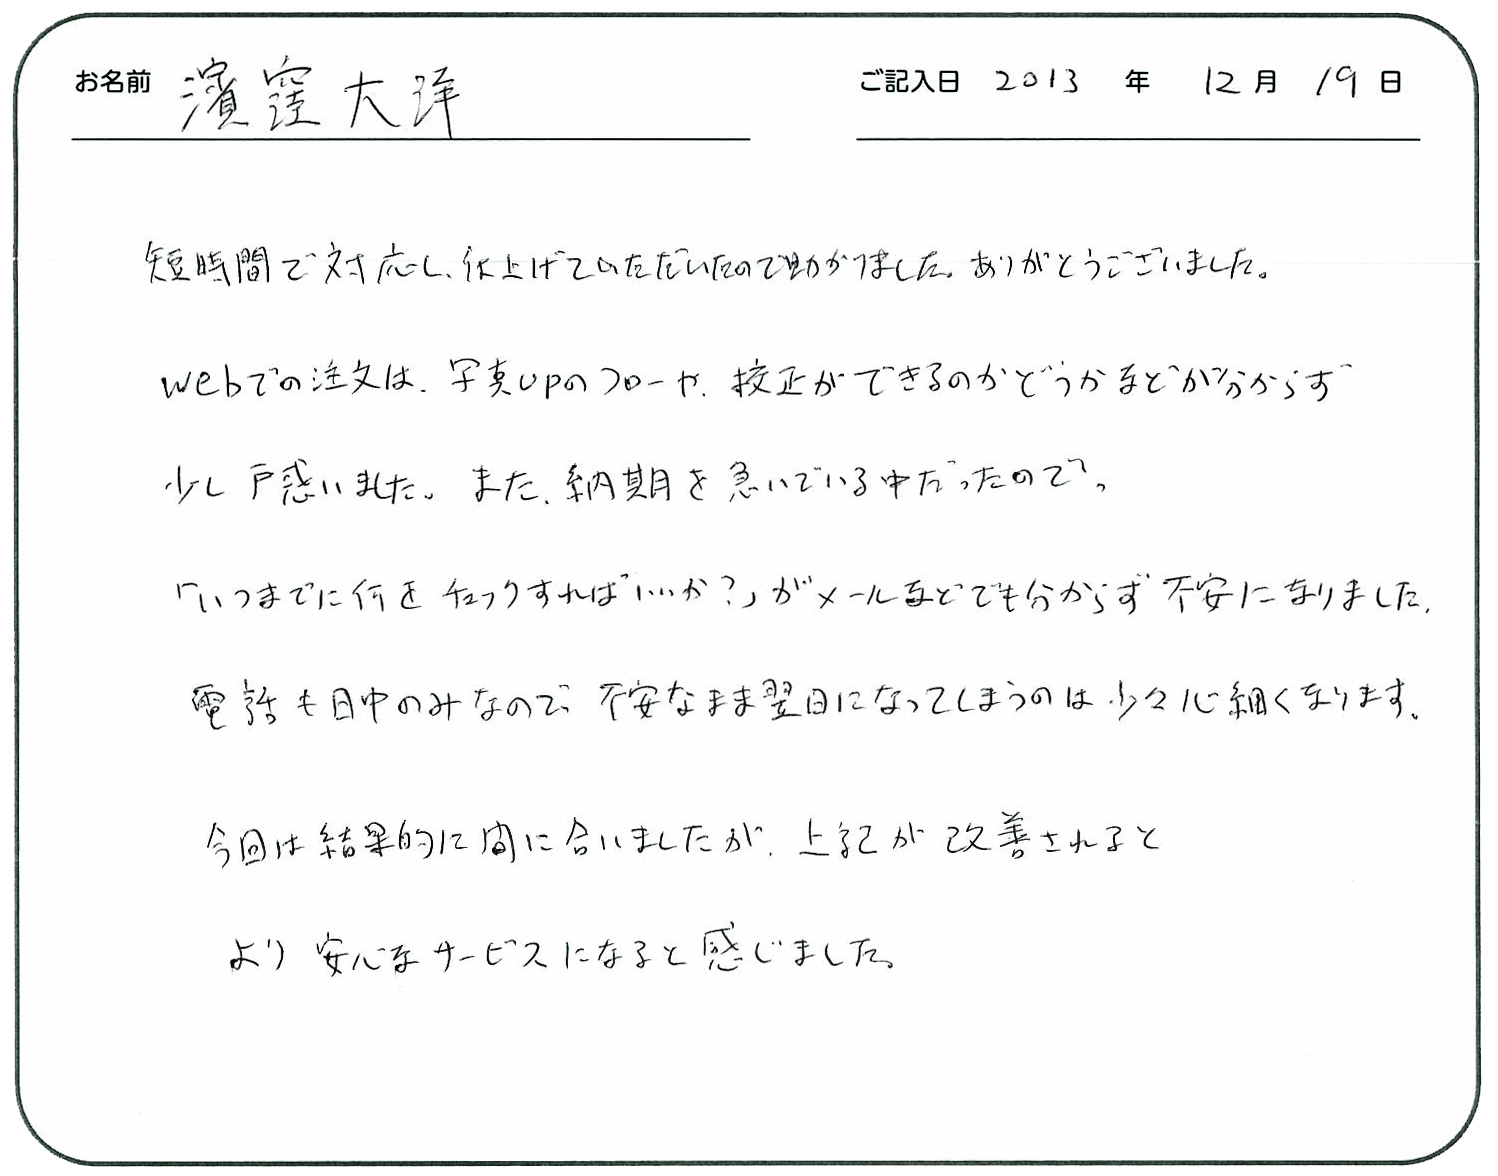 お名前 濱窪大洋 ご記入日 2013 年 12月 19日
短時間で対応し、仕上げていただいたので助かりました。ありがとうございました。
webでの注文は、写真upのフローや、校正ができるのかどうかなどが分からず
少し戸惑いました。また、納期を急いでいる中だったので、
「いつまでに何をチェックすればいいか?」がメールなどでも分からず不安になりました。
電話も日中のみなので、不安なまま翌日になってしまうのは少々心細くなります。
今回は結果的に間に合いましたが、上記が改善されると
より安心なサービスになると感じました。